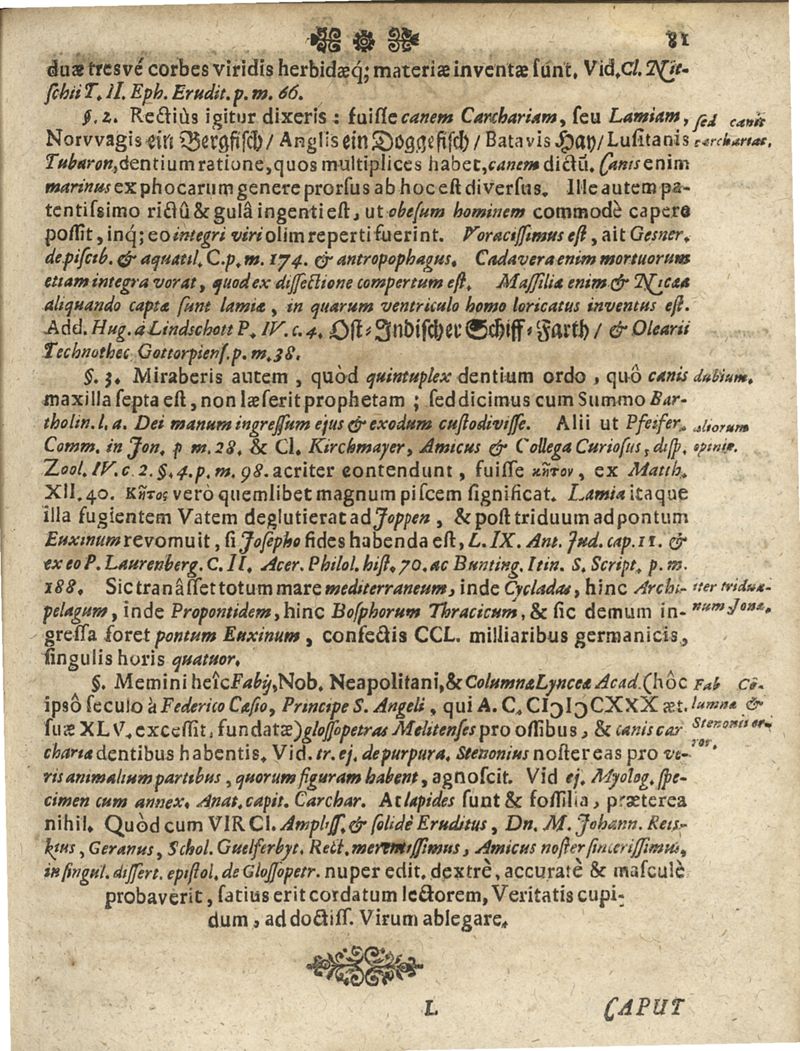 81
duæ tresvé corbes viridis herbidæq́; materiæ inventæ sunt. Vid. Cl. Nit-
schii T. II. Eph. Erudit. p. m. 66.
§. 2. Rectiùs igitur dixeris: fuisse canem Carchariam, seu Lamiam, sed canis
Norvvagis ein Bergfisch/ Anglis ein Doggefisch/ Batavis Hay/ Lusitanis carcharias.
Tubaron, dentium ratione, quos multiplices habet, canem dictũ. Canis enim
marinus ex phocarum genere prorsus ab hoc est diversus. Ille autem pa-
tentissimo rictû & gulâ ingenti est, ut obesum hominem commodè capere
possit, inq́; eo integri viri olim reperti fuerint. Voracissimus est, ait Gesner.
de piscib. & aquatil. C. p. m. 174. & antropophagus. Cadavera enim mortuorum
etiam integra vorat, quod ex dissectione compertum est. Massiliæ enim & Nicææ
aliquando captæ sunt lamiæ, in quarum ventriculo homo loricatus inventus est.
Add. Hug. à Lindschott P. IV. c. 4. Ost-Indischer Schiff-Farth/ & Olearii
Technothec Gottorpiens. p. m. 38.
§. 3. Miraberis autem, quòd quintuplex dentium ordo, quô canis dubium.
maxilla septa est, non læserit prophetam; sed dicimus cum Summo Bar-
tholin. l. a. Dei manum ingressum ejus & exodum custodivisse. Alii ut Pfeifer. aliorum
Comm. in Jon. p m. 28. & Cl. Kirchmayer, Amicus & Collega Curiosus, disp. opinio.
Zool. IV. c 2. §. 4. p. m. 98. acriter contendunt, fuisse κῆτον, ex Matth.
XII. 40. Κῆτος verò quemlibet magnum piscem significat. Lamia itaque
illa fugientem Vatem deglutierat ad Joppen, & post triduum ad pontum
Euxinum revomuit, si Josepho fides habenda est, L. IX. Ant. Jud. cap. 11. &
ex eo P. Laurenberg. C. II. Acer. Philol. hist. 70. ac Bunting. Itin. S. Script. p. m.
188. Sic tranâsset totum mare mediterraneum, inde Cycladas, hinc Archi- iter tridua-
pelagum, inde Propontidem, hinc Bosphorum Thracicum, & sic demum in- num Jonæ.
gressa foret pontum Euxinum, confectis CCL. milliaribus germanicis,
singulis horis quatuor.
§. Memini heîc Fabij, Nob. Neapolitani, & Columnæ Lynceæ Acad. (hôc Fab Co-
ipsô seculo à Federico Cæsio, Principe S. Angeli, qui A. C. CIƆIƆCXXX æt. lumnæ &
suæ XLV. excessit, fundatæ) glossopetras Melitenses pro ossibus, & canis car Stenonis er-
chariæ dentibus habentis. Vid. tr. ej. de purpura. Stenonius noster eas pro ve- ror.
ris animalium partibus, quorum figuram habent, agnoscit. Vid ej. Myolog. spe-
cimen cum annex. Anat. capit. Carchar. At lapides sunt & fossilia, præterea
nihil. Quòd cum VIR Cl. Ampliss. & solidè Eruditus, Dn. M. Johann. Reis-
kius, Geranus, Schol. Guelferbyt. Rect. meritissimus, Amicus noster sincerissimus,
in singul. dissert. epistol. de Glossopetr. nuper edit. dextrè, accuratè & masculè
probaverit, satius erit cordatum lectorem, Veritatis cupi-
dum, ad doctiss. Virum ablegare.
L CAPUT